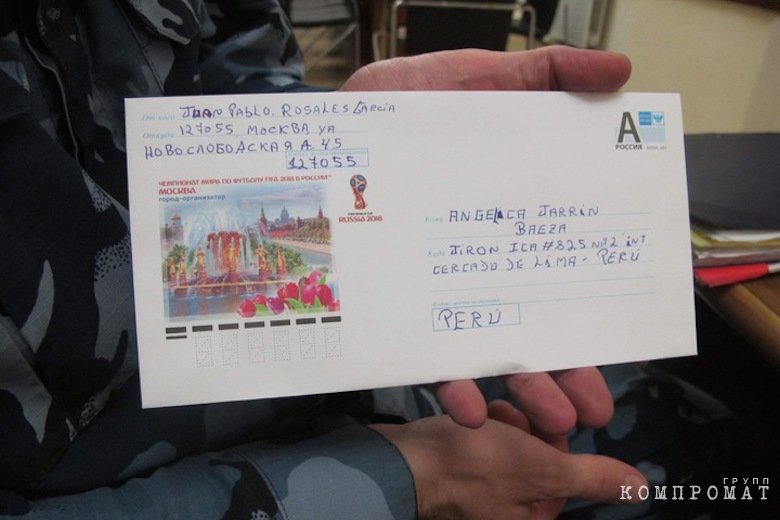 От кого JUAN PABLO. ROSALES GARCIA
Откуда 127055, МОСКВА УЛ
НОВОСЛОБОДСКАЯ Д. 45
127055
ЧЕМПИОНАТ МИРА ПО ФУТБОЛУ FIFA 2018 В РОССИИ™
МОСКВА
город-организатор
FIFA WORLD CUP
RUSSIA 2018
А
РОССИЯ
Кому ANGELICA JARRIN
BAEZA
Куда JIRON ICA #825 INT
CERCADO DE LIMA - PERÚ
PERÚ
ГРУПП
КОМПРОМАТ